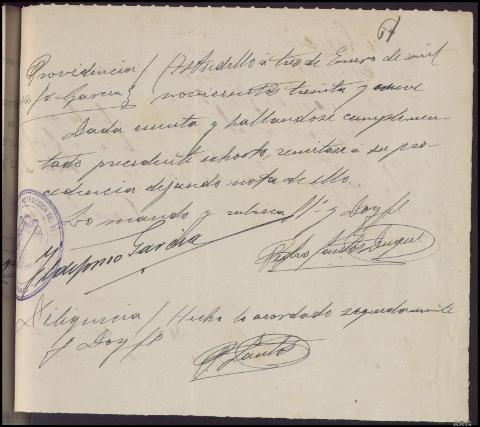 64
Providencia / Astudillo a tres de Enero de mil
Sr. Garcia } novecientos treinta y nueve
Dada cuenta y hallandose cumplimen-
tado precedente exhorto, remitase a su pro-
cedencia dejando nota de ello.
Lo mando y rubrica S.Sª y Doy fe
Ildefonso Garcia
Pedro Santos Duque
Diligencia / Hecho lo acordado seguidamente
Doy fe
P. Santos